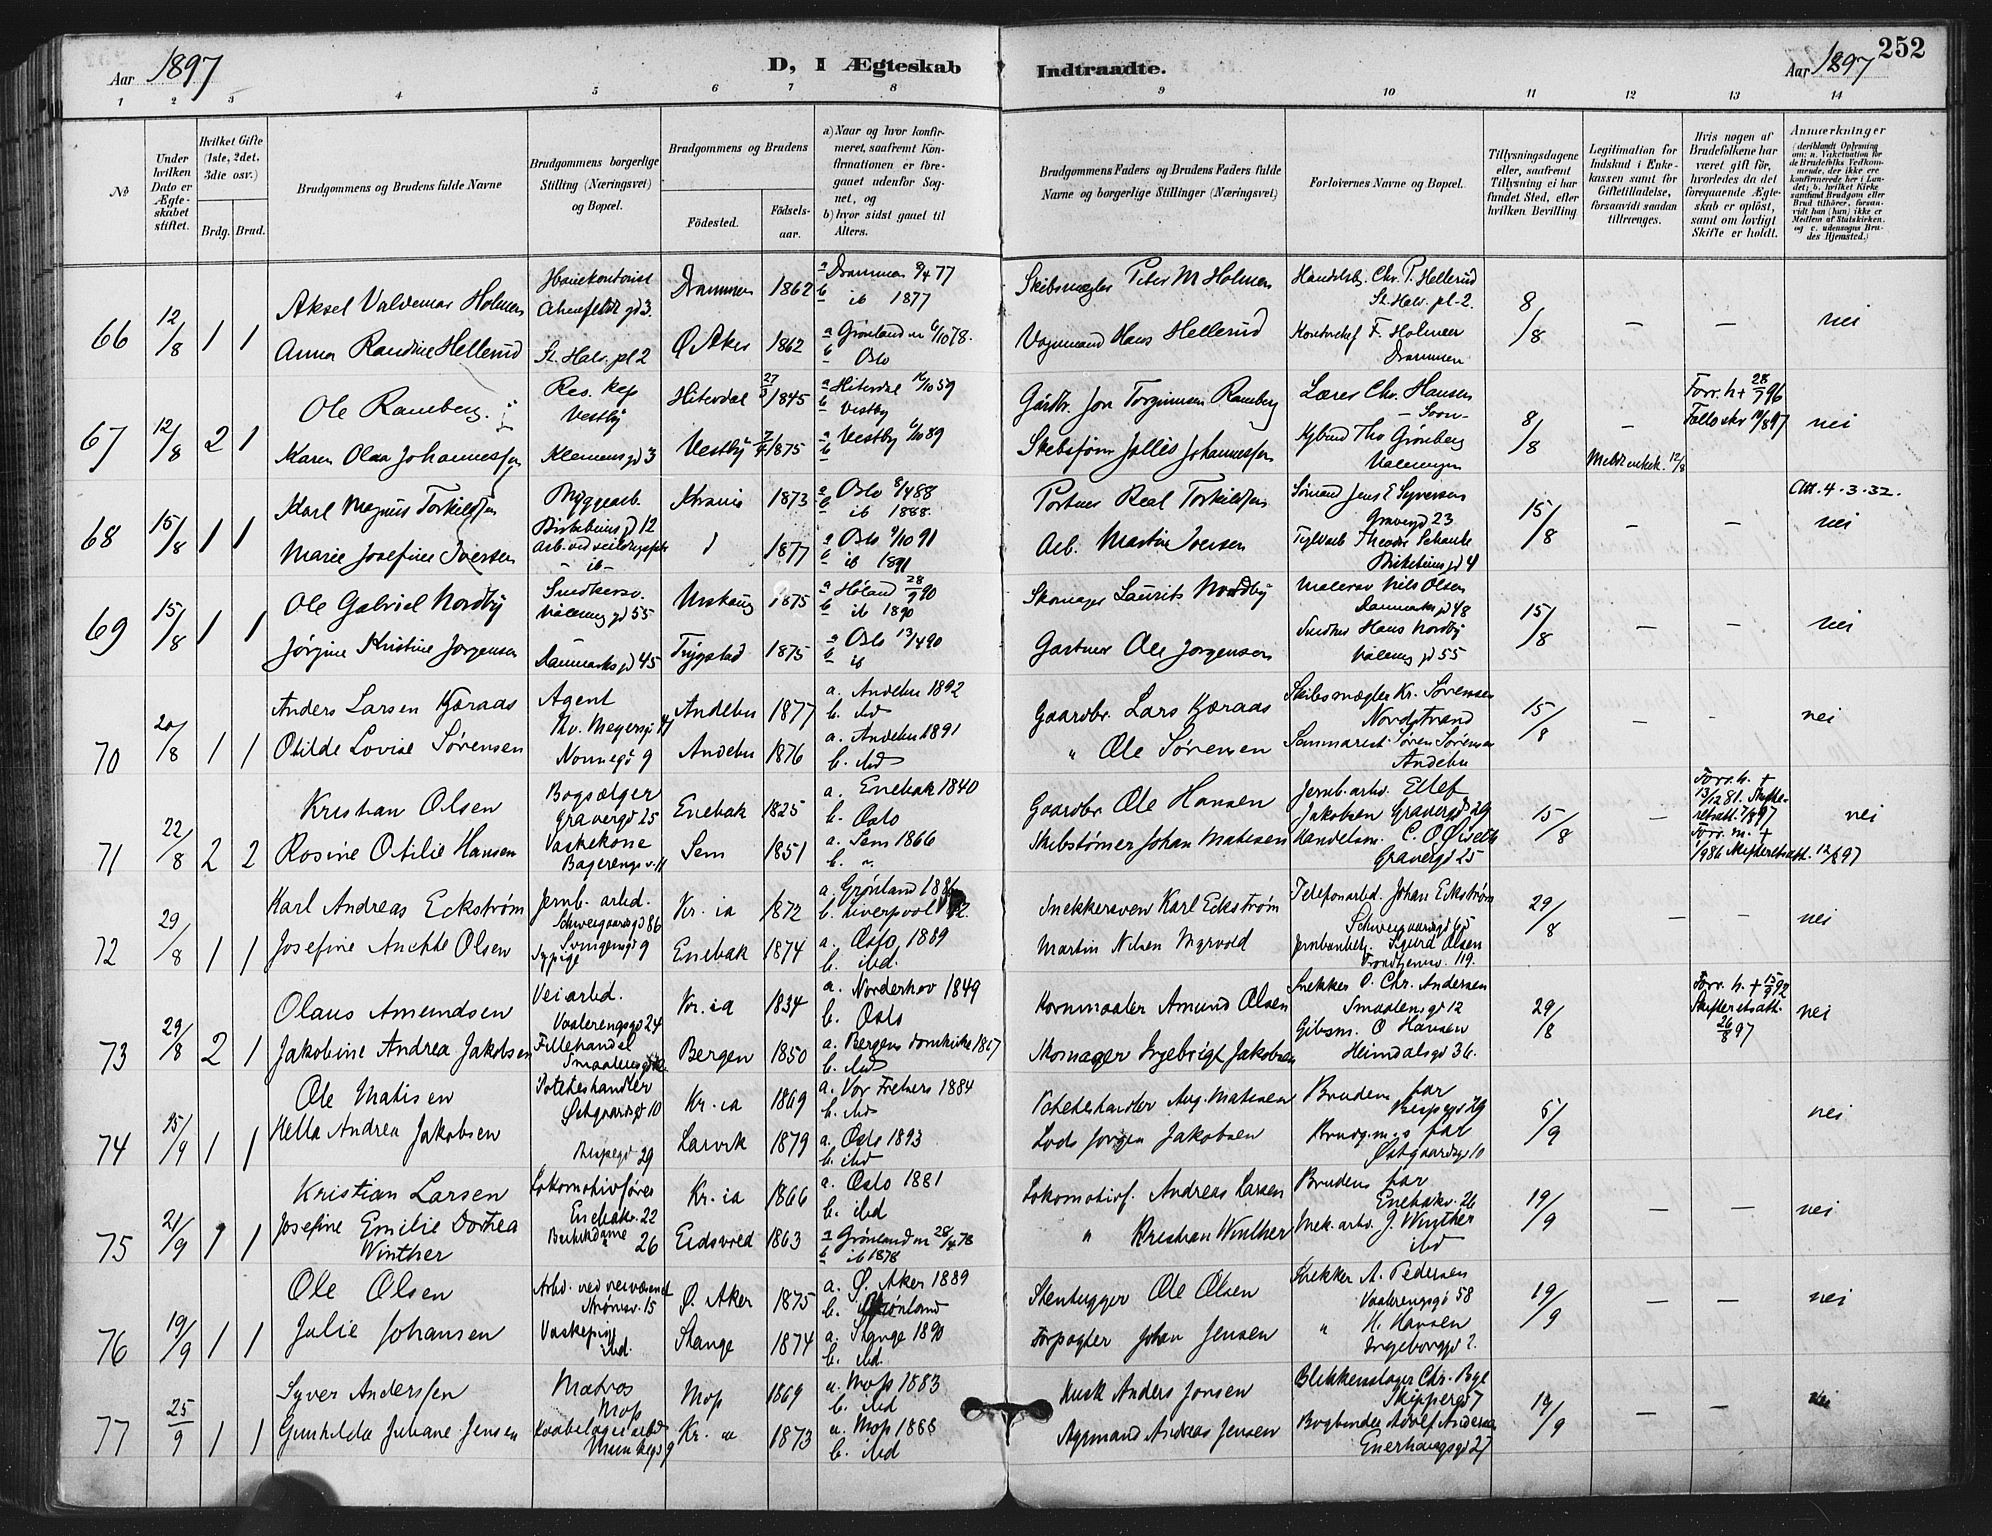 Aar 1897
D, I Ægteskab
Indtraadte.
Aar 1897
252
1 2 3 4 5 6 7 8 9 10 11 12 13 14
No
Under hvilken Dato er Ægteskabet stiftet.
Hvilket Gifte (1ste, 2det, 3die osv.)
Brdg. Brud.
Brudgommens og Brudens fulde Navne
Brudgommens borgerlige Stilling (Næringsvei) og Bopæl.
Brudgommens og Brudens
Fødested.
Fødselsaar.
a) Naar og hvor konfirmeret, saafremt Konfirmationen er foregaaet udenfor Sognet, og
b) hvor sidst gaaet til Alters.
Brudgommens Faders og Brudens Faders fulde Navne og borgerlige Stillinger (Næringsvei)
Forlovernes Navne og Bopæl.
Tillysningsdagene eller, saafremt Tillysning ei har fundet Sted, efter hvilken Bevilling
Legitimation for Indskud i Enkekassen samt for Giftetilladelse, forsaavidt saadan tiltrænges.
Hvis nogen af Brudefolkene har været gift før, hvorledes da det foregaaende Ægteskab er opløst, samt om lovligt Skifte er holdt.
Anmærkninger
66 12/8 1 1
Aksel Valdemar Holmen
gd 3 Drammen 1862 a Drammen 8/4 77
b ib 1877
Skibsmægler Peter M Holmen
Handelsb. Chr. P. Hellerud
St. Halv. pl. 2
8/8 – – nei
Anna Randine Hellerud
St. Halv. pl 2 Ø. Aker 1862 a Grønland 6/10 78.
b Oslo
Vognmand Hans Hellerud
F. Holmen
Drammen
67 12/8 2 1
Ole Ramberg.
Res. kap
Vestby
Hiterdal 1845 a Hiterdal 16/10 59
b Vestby
Gårdbr. Jon Torginnsen Ramberg
Lærer Chr. Hansen
– Soon –
8/8 –
Forr. h + 28/7 96
nei
Karen Olea Johannessen
Klemens gd 3 Vestby 1875 a Vestby 6/10 89
b
Johannessen
Tho Grønberg
12/8
68 15/8 1 1
Karl Magnus Torkildsen
Byggearb.
Birkebeiner gd 12
Krania 1873 a Oslo 8/4 88
b ib 1888
Portner Real Torkildsen
Sømand Jens E Syversen
Gravergd 23
15/8 – –
Att. 4-3-32.
nei
Marie Josefine Iversen
– ib –
1877 a Oslo 4/10 91
b ib 1891
Arb. Martin Iversen
Theodor Schanke
Birkebeiner gd 4
69 15/8 1 1
Ole Gabriel Nordby
Snedkersv.
Vålereng gd 55
Urskoug 1875 a Høland 28/9 90
b ib 1890
Skomager Laurits Nordby
Malersv Nils Olsen
Danmarks gd 48
15/8 – – nei
Jørgine Kristine Jørgensen
Danmarks gd 45
Trygstad 1875 a Oslo 13/4 90
b ib
Gartner Ole Jørgensen
Snedker Hans Nordby
Vålereng gd 55
70 20/8 1 1
Anders Larsen Kjæraas
Agent
Th. Meyersg 17
Andebu 1877 a. Andebu 1892
b. ibd
Gaardbr. Lars Kjæraas
Skibsmægler Kr. Sørensen
Nordstrand
15/8 – – nei
Otilde Lovise Sørensen
Nonnegd 9
Andebu 1876 a. Andebu 1891
b. ibd
" Ole Sørensen
Søren Sørensen
Andebu
71 22/8 2 2
Kristian Olsen
Bogsælger
Gravergd 25
Enebak 1825 a. Enebak 1840
b. Oslo
Gaardbr Ole Hansen
Jernb. arb. Ellef
Jakobsen Gravergd 29
15/8 –
Forr. h. +
13/12 81. Skifteretsatt. 7/8 97
nei
Rosine Otilie Hansen
Vaskekone
Bagerengv. 11
Sem 1851 a. Sem 1866
b. "
Skibstømer Johan Matisen
Handelsm. C. O. Øiseth
Gravergd 25
Forr. m. +
1/9 86 Skifteretsatt. 12/8 97
72 29/8 1 1
Karl Andreas Eckstrøm
Jernb. arbd.
Schweigaardsgd 86
Kr.ia 1872 a. Grønland 1886
b. Liverpool
Snekkersven Karl Eckstrøm
Telefonarbd. Johan Eckstrøm
Schweigaardsgd 65
29/8 – – nei
Josefine Anette Olsen
Sypige
Enebak 1874 a. Oslo 1889
b. ibd.
Martin Nilsen Myrvold
Sigurd Olsen
Trondhjemsv. 119.
73 29/8 2 1
Olaus Amundsen
Veiarbd.
Vaalerengsgd 24
Kr.ia 1834 a. Norderhov 1849
b. Oslo
Kornmaaler Amund Olsen
Snekker O. Chr. Andersen
Smaalensgd 12
29/8
Forr. h. + 15/9 92
Skifteretsatt.
26/8 97
nei
Jakobine Andrea Jakobsen
Fillehandel
Bergen 1850 a. Bergens Domkirke 1867
b. ibd
Skomager Ingebrigt Jakobsen
Gibsm. O Hansen
Heimdalsgd 36.
74 15/9 1 1
Ole Matisen
Poteteshandler
Østgaardsgd 10
Kr.ia 1869 a. Vor Frelsers 1884
b. ibd
Potetehandler Aug. Matisen
Brudens far
Bispegd 29
5/9 nei
Hella Andrea Jakobsen
Bispegd 29
Larvik 1879 a. Oslo 1893
b. ibd
Lods Jørgen Jakobsen
Brudgm.s far
Østgaardsgd 10
75 21/9 1 1
Kristian Larsen
Lokomotivfører
Enebakv. 22
Kr.ia 1866 a. Oslo 1881
b. ibd
Lokomotivf. Andreas Larsen
Brudens far
Enebakv. 26
19/9 – – nei
Josefine Emilie Dortea
Winther
Butikdame
" 26
Eidsvold 1863 a Grønland 28/4 78
b ib 1878
" Kristian Winther
Mek. arb. J. Winther
ibd
76 19/9 1 1
Ole Olsen
Arbd. ved veivæsenet
Strømsv. 15
Ø. Aker 1875 a. Ø. Aker 1889
b. Grønland
Stenhugger Ole Olsen
Snekker A. Pedersen
Vaalerengsgd 58
19/9 – – nei
Julie Johansen
Vaskepige
ibd.
Stange 1874 a. Stange 1890
b. ibd.
Forpagter Johan Jensen
" H. Hansen
Ingeborggd 2.
77 25/9 1 1
Syver Anderssen
Matros
Moss
Moss 1869 a. Moss 1883
b. ibd
Kusk Anders Jonsen
Blikkenslager Chr. Bye
Skippergd 7
19/9 – – nei
Gunhilda Juliane Jensen
Kr. ia 1873 a. Moss 1888
b. ibd
Andreas Jensen
Bogbinder Adolf Andersen
Enerhaugsgd 27